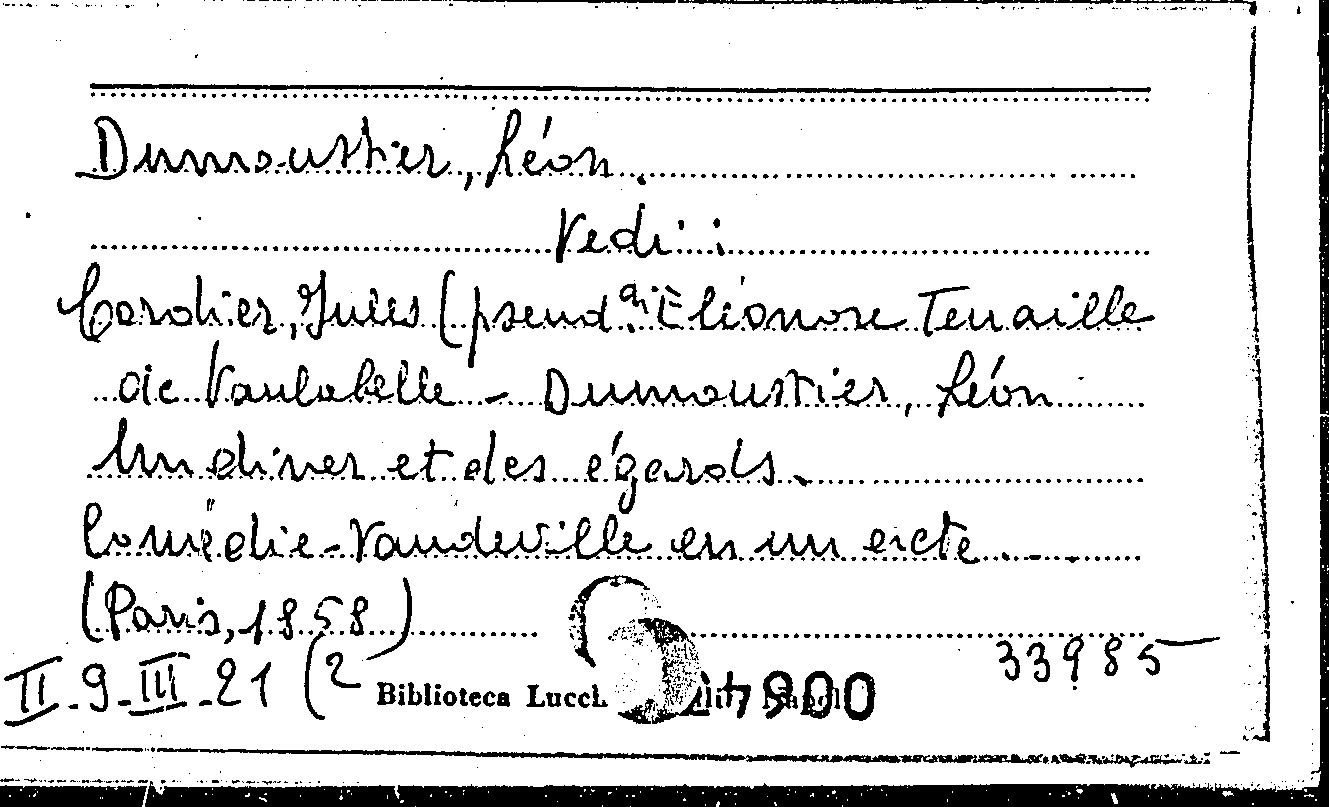 Dumoustier, Léon.
Vedi:
Cordier, Jules (pseud. di Eléonore Tenaille
de Vaulabelle - Dumoustier, Léon
Un diner et des égards.
Comédie-Vaudeville en un acte.
(Paris, 1858)
33985
II-9-III-21 (2
Biblioteca Lucch